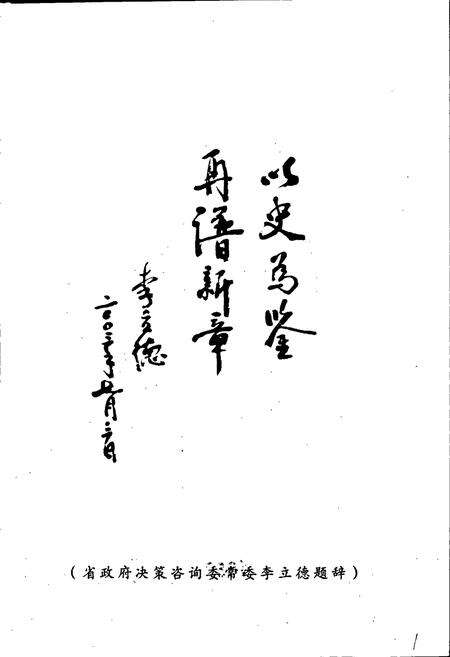 以史为鉴
再谱新章
李立德
二〇〇三年九月二日
（省政府决策咨询委常委李立德题辞）
1